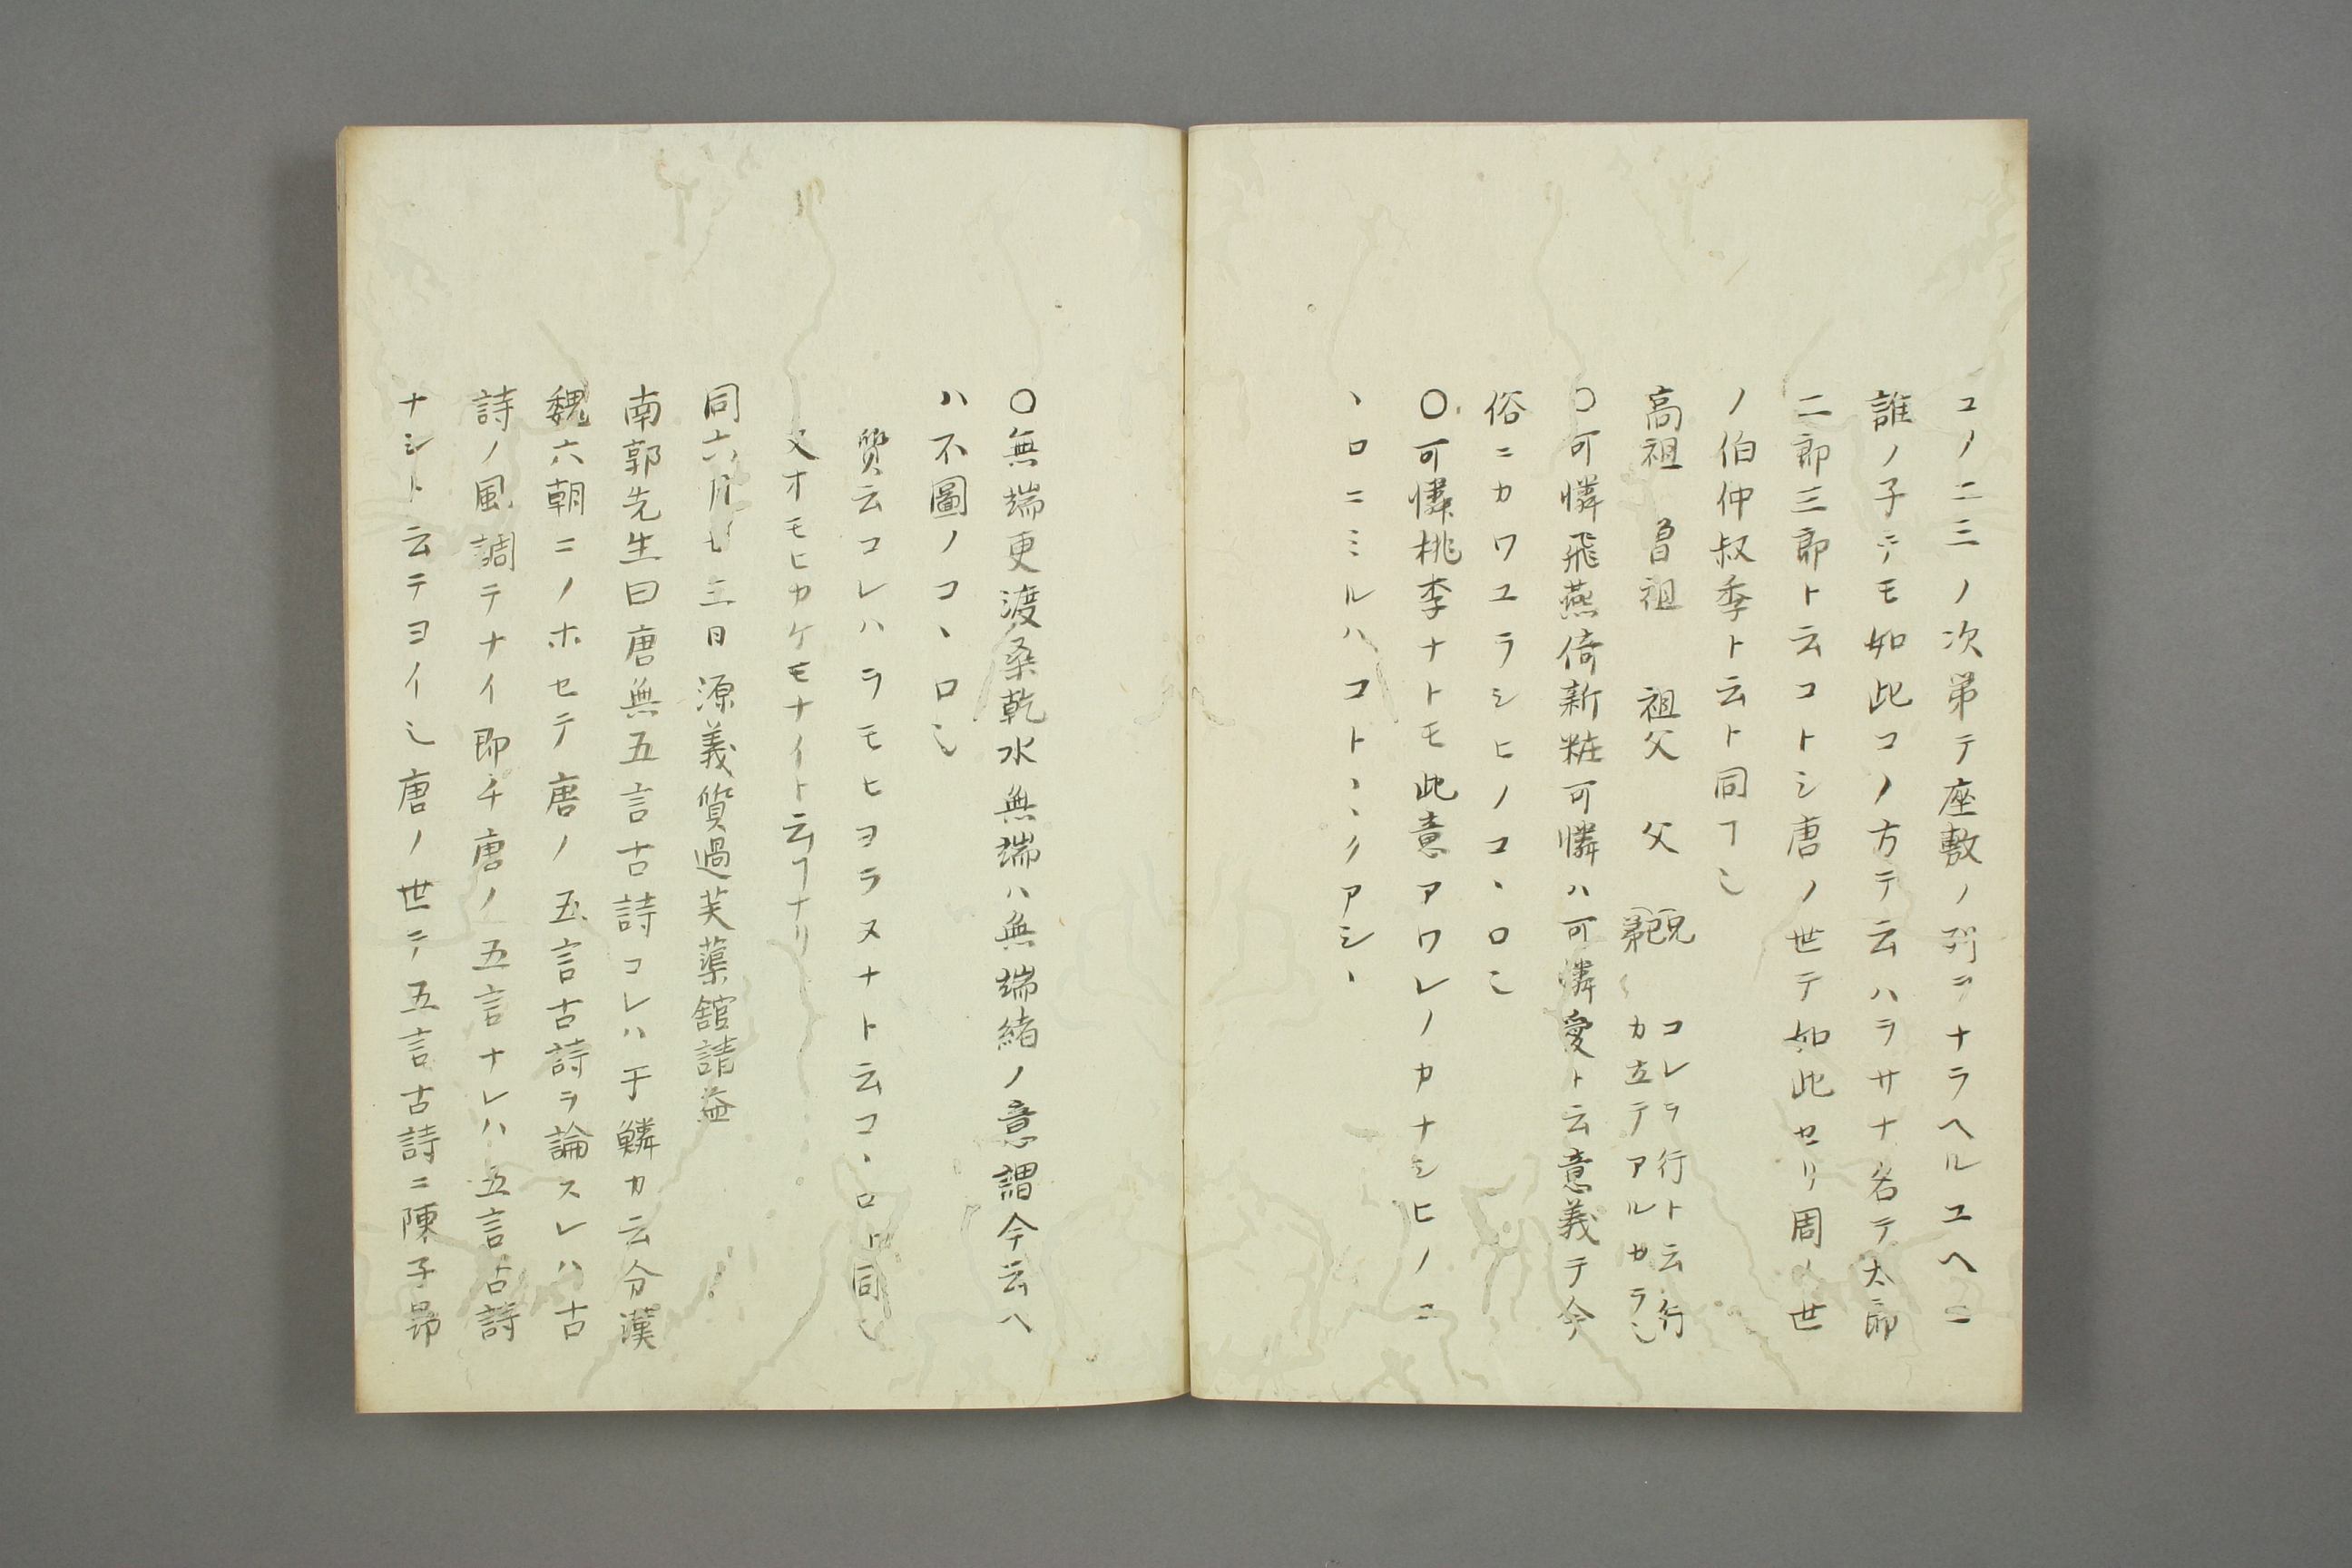 コノ二三ノ次第テ座敷ノ列ヲナラヘルユヘニ
誰ノ子テモ如此コノ方テ云ハラサナ名テ太郎
二郎三郎ト云コトシ唐ノ世テ如此セリ周ノ世
ノ伯仲叔季ト云ト同ヿ乄
高祖 曽祖 祖父 父 兄 己 弟 コレヲ行ト云行
カ立テアルカラ乄
〇可憐飛燕倚新粧可憐ハ可憐愛ト云意義テ今
俗ニカワユラシヒノコヽロ乄
〇可憐桃李ナトモ此意アワレノカナシヒノコ
ヽロニミルハコトヽヽクアシヽ
〇無端更渡桑乾水無端ハ無端緒ノ意謂今云ヘ
ハ不圖ノコヽロ乄
質云コレハラモヒヨラヌナト云コヽロト同乄
又オモヒカケモナイト云ヿナリ
同六月 三日源義質過芙蕖舘請益
南郭先生曰唐無五言古詩コレハ于鱗カ云分漢
魏六朝ニノホセテ唐ノ五言古詩ヲ論スレハ古
詩ノ風調テナイ即チ唐ノ五言ナレハ五言古詩
ナシト云テヨイ乄唐ノ世テ五言古詩ニ陳子昴